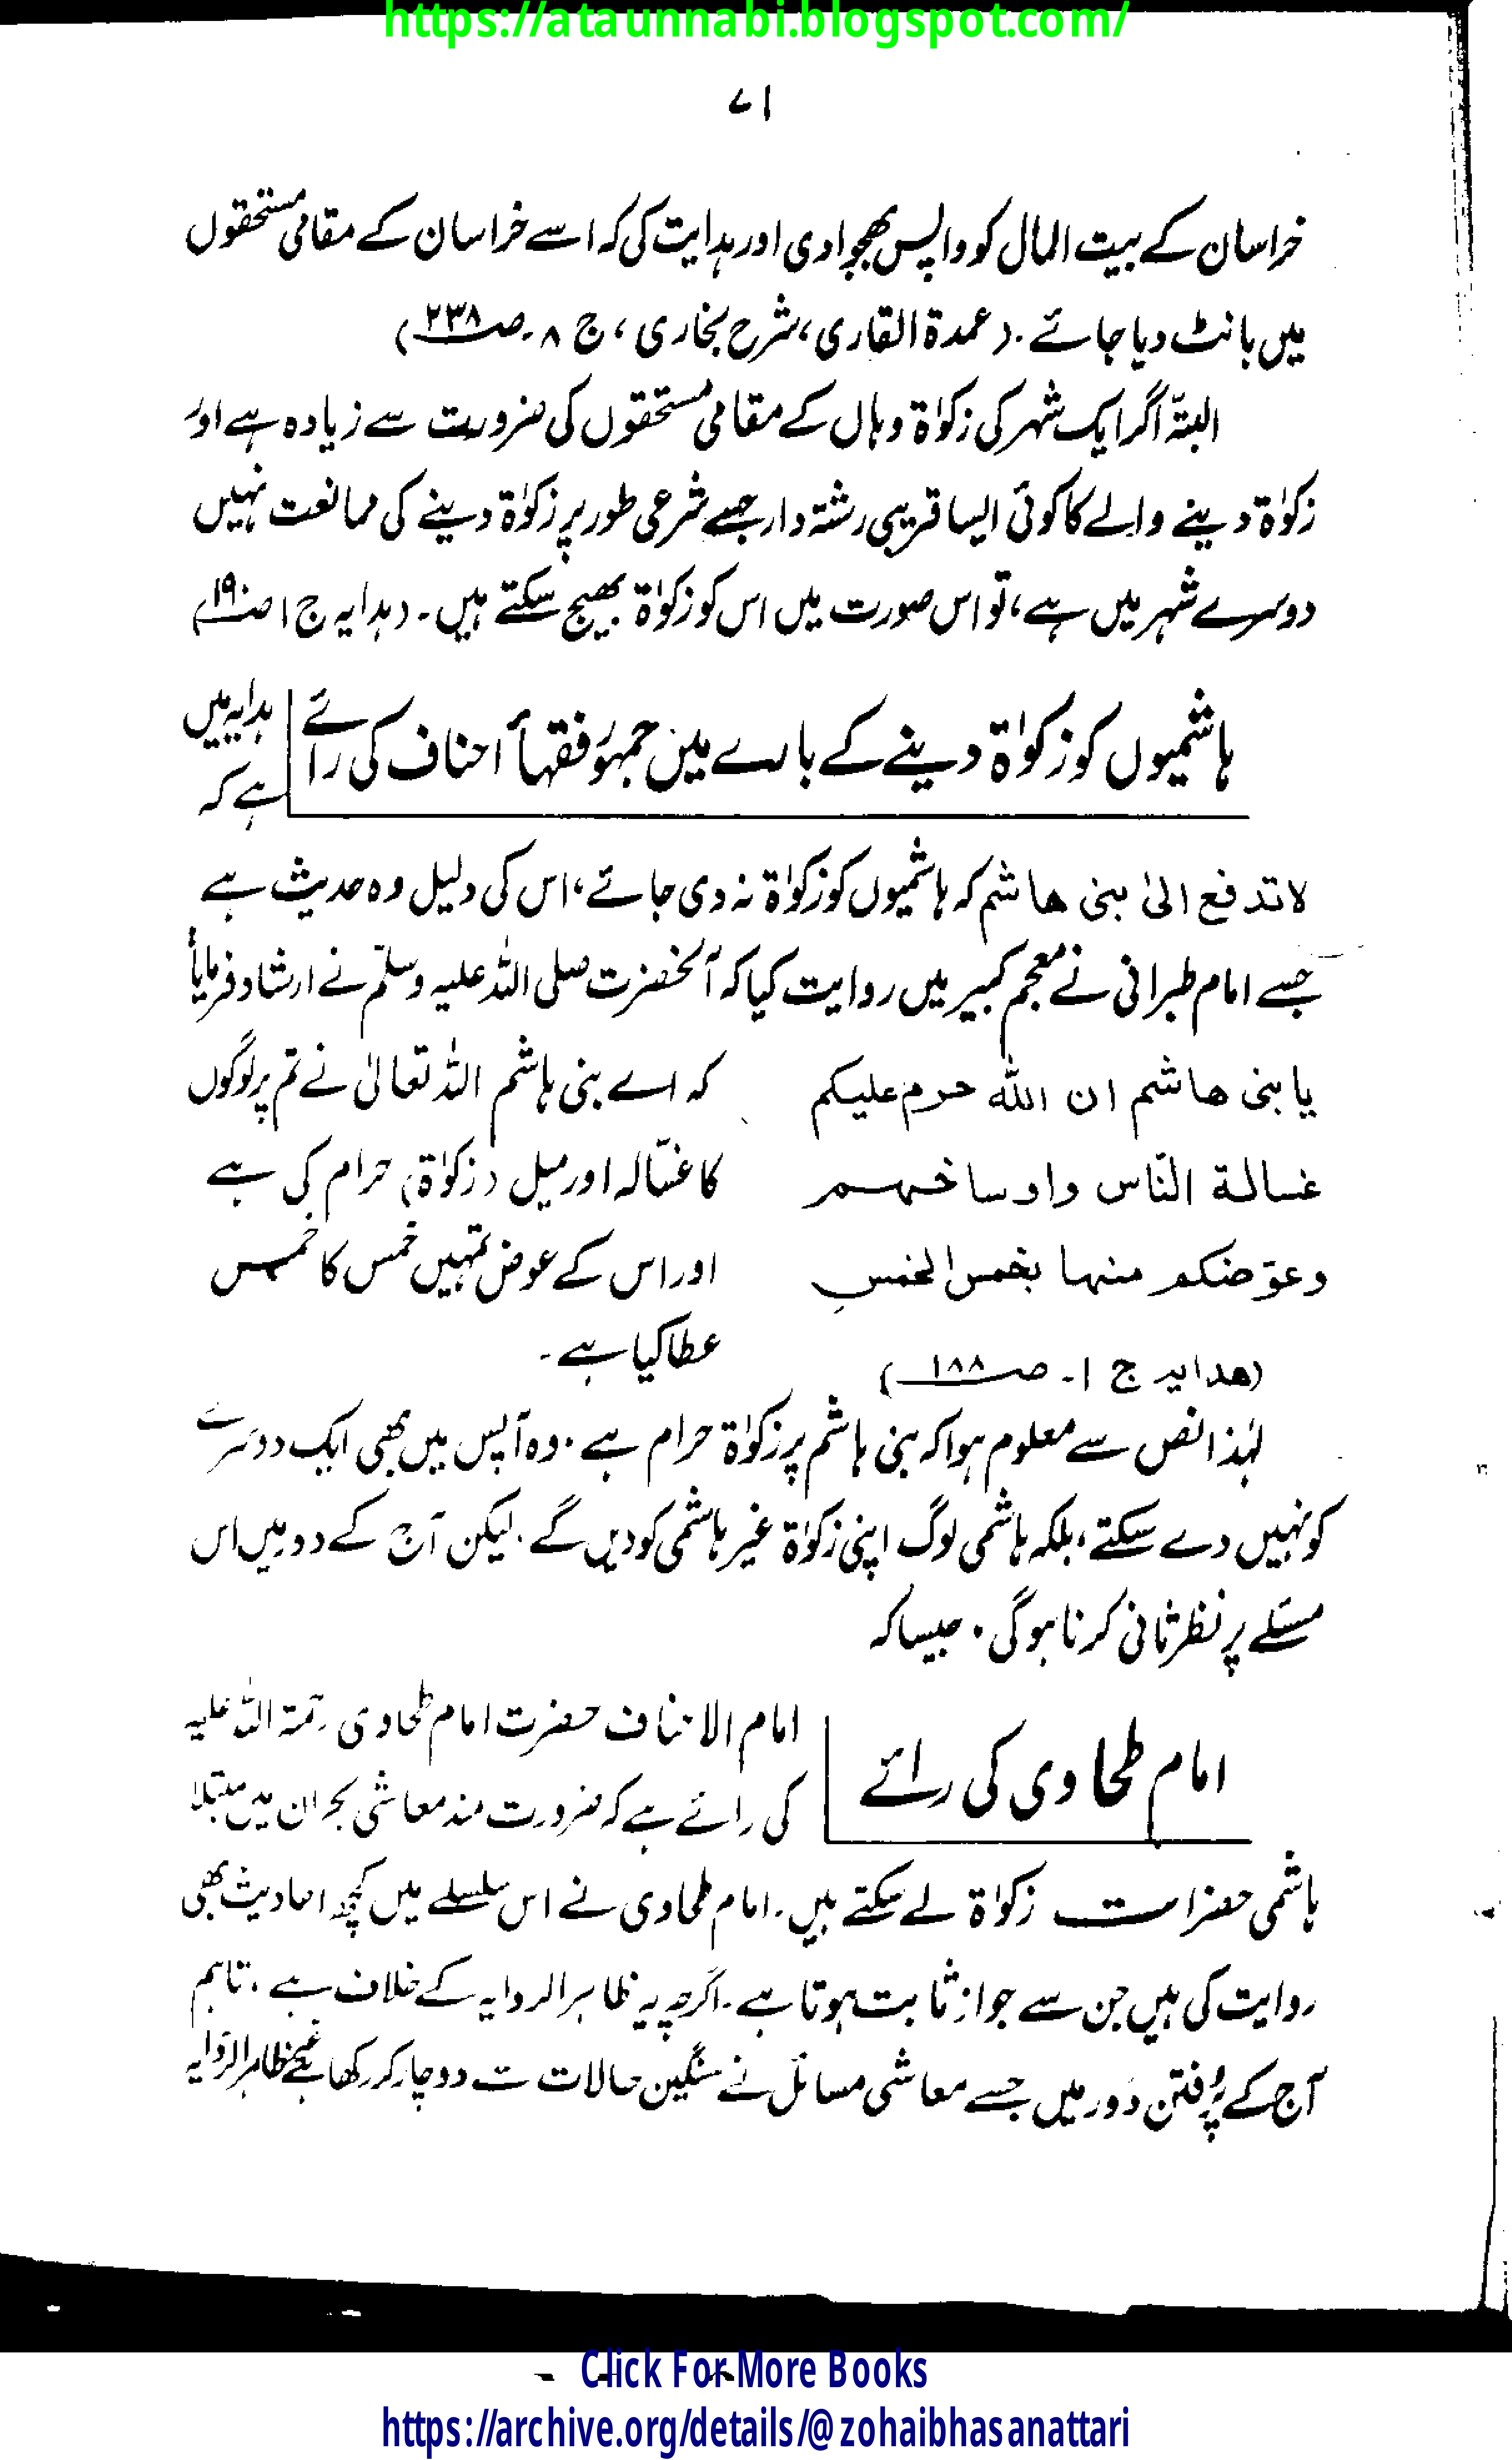 https://ataunnabi.blogspot.com/
۷۱
خراسان کے بیت المال کو واپس بھجوا دی اور ہدایت کی کہ اسے خراسان کے مقامی مستحقوں
میں بانٹ دیا جائے۔ (عمدۃ القاری، شرح بخاری، ج ۸۔ ص ۲۳۸)
البتہ اگر ایک شہر کی زکوٰۃ وہاں کے مقامی مستحقوں کی ضرورت سے زیادہ ہے اور
زکوٰۃ دینے والے کا کوئی ایسا قریبی رشتہ دار جسے شرعی طور پر زکوٰۃ دینے کی ممانعت نہیں
دوسرے شہر میں ہے، تو اس صورت میں اس کو زکوٰۃ بھیج سکتے ہیں۔ (ہدایہ ج ۱ ص ۱۹۰)
ہاشمیوں کو زکوٰۃ دینے کے بارے میں جمہور فقہأ احناف کی رائے
ہدایہ میں
ہے کہ
لا تدفع الیٰ بنی ھاشم کہ ہاشمیوں کو زکوٰۃ نہ دی جائے، اس کی دلیل وہ حدیث ہے
جسے امام طبرانی نے معجم کبیر میں روایت کیا کہ آنحضرت صلی اللہ علیہ وسلّم نے ارشاد فرمایا
یا بنی ھاشم ان اللہ حرم علیکم
غسالۃ النّاس واوساخہم
وعوّضکم منہا بخمس الخمس
(ھدایہ ج ۱۔ ص ۱۸۸)
کہ اے بنی ہاشم اللہ تعالیٰ نے تم پر لوگوں
کا غسّالہ اور میل (زکوٰۃ) حرام کی ہے
اور اس کے عوض تمہیں خمس کا خمس
عطا کیا ہے۔
لہٰذا نص سے معلوم ہوا کہ بنی ہاشم پر زکوٰۃ حرام ہے۔ وہ آپس میں بھی ایک دوسرے
کو نہیں دے سکتے، بلکہ ہاشمی لوگ اپنی زکوٰۃ غیر ہاشمی کو دیں گے۔ لیکن آج کے دور میں اس
مسئلے پر نظر ثانی کرنا ہو گی۔ جیسا کہ
امام طحاوی کی رائے
امام الاحناف حضرت امام طحاوی رحمۃ اللہ علیہ
کی رائے ہے کہ ضرورت مند معاشی بحران میں مبتلا
ہاشمی حضرات زکوٰۃ لے سکتے ہیں۔ امام طحاوی نے اس سلسلے میں کچھ احادیث بھی
روایت کی ہیں جن سے جواز ثابت ہوتا ہے۔ اگرچہ یہ ظاہر الروایہ کے خلاف ہے۔ تاہم
آج کے پُرفتن دَور میں جسے معاشی مسائل نے سنگین حالات سے دوچار کر رکھا ہے ظاہر الروایہ
Click For More Books
https://archive.org/details/@zohaibhasanattari